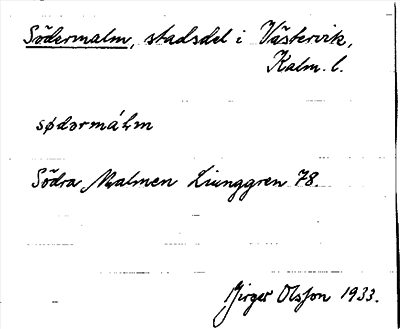 Södermalm, stadsdel i Västervik,
Kalm. l.
sødərmáLm
Södra Malmen Liunggren 78.
Birger Olsson 1933.